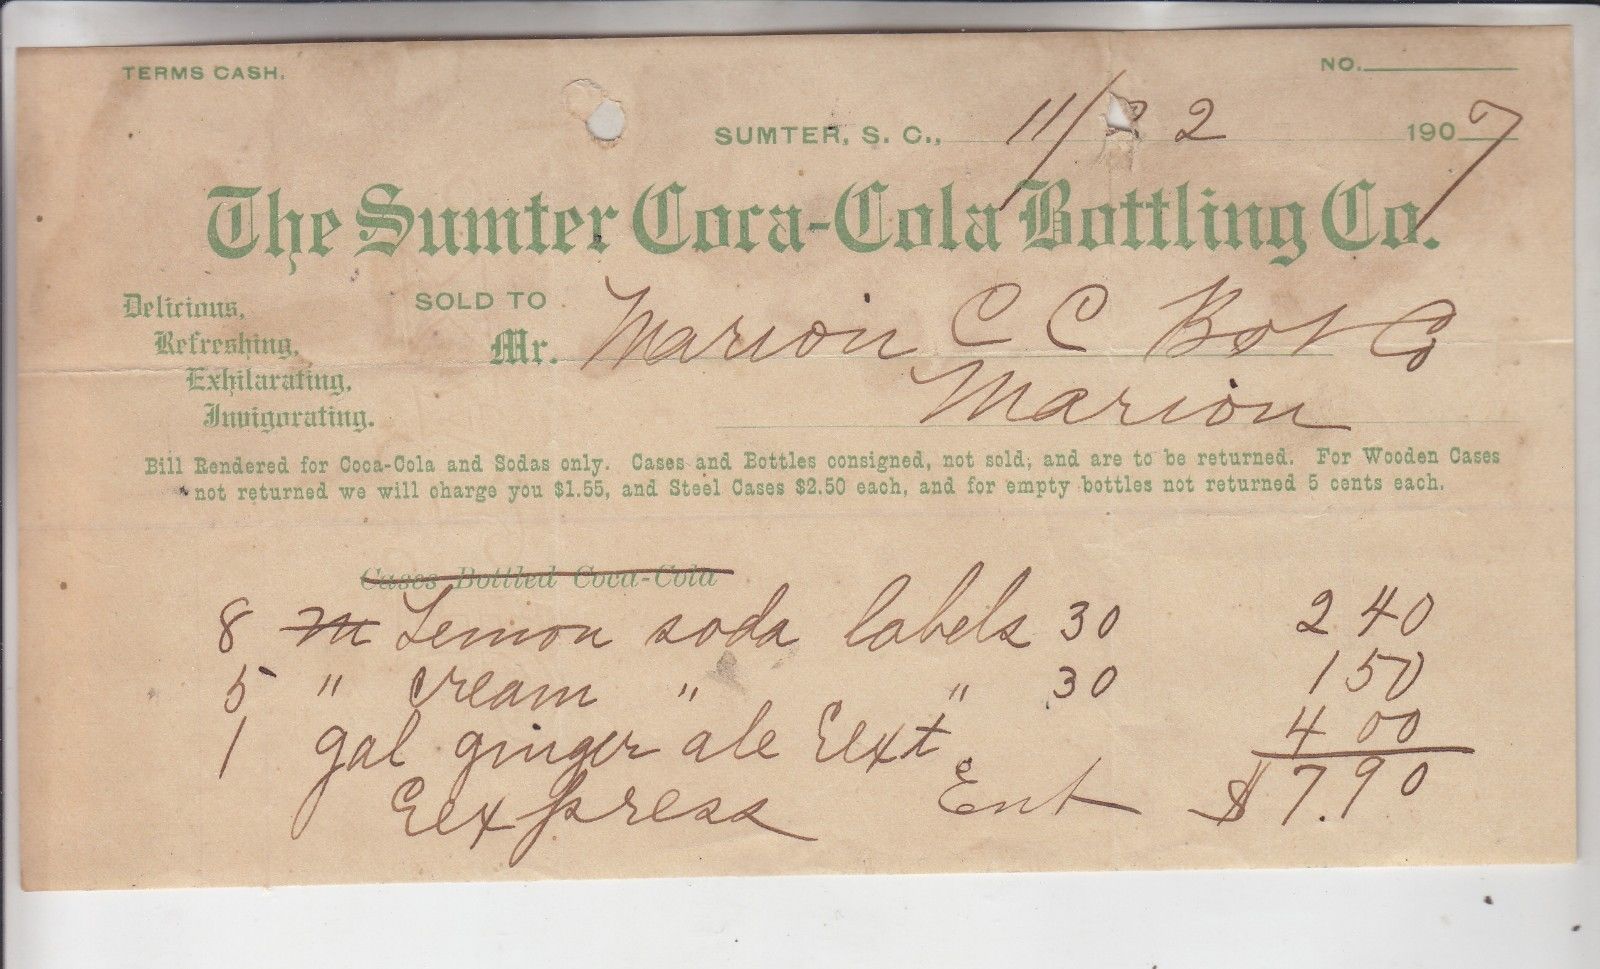 TERMS CASH.
NO.
SUMTER, S. C., 11/22 1907
The Sumter Coca-Cola Bottling Co.
Delicious,
Refreshing,
Exhilarating,
Invigorating.
SOLD TO
Mr. Marion C C Bot Co
Marion
Bill Rendered for Coca-Cola and Sodas only. Cases and Bottles consigned, not sold; and are to be returned. For Wooden Cases
not returned we will charge you $1.55, and Steel Cases $2.50 each, and for empty bottles not returned 5 cents each.
Cases Bottled Coca-Cola
8 m Lemon soda labels 30 2 40
5 " cream " " 30 1 50
1 gal ginger ale Eext. 4 00
Eexpress Ent $7.90